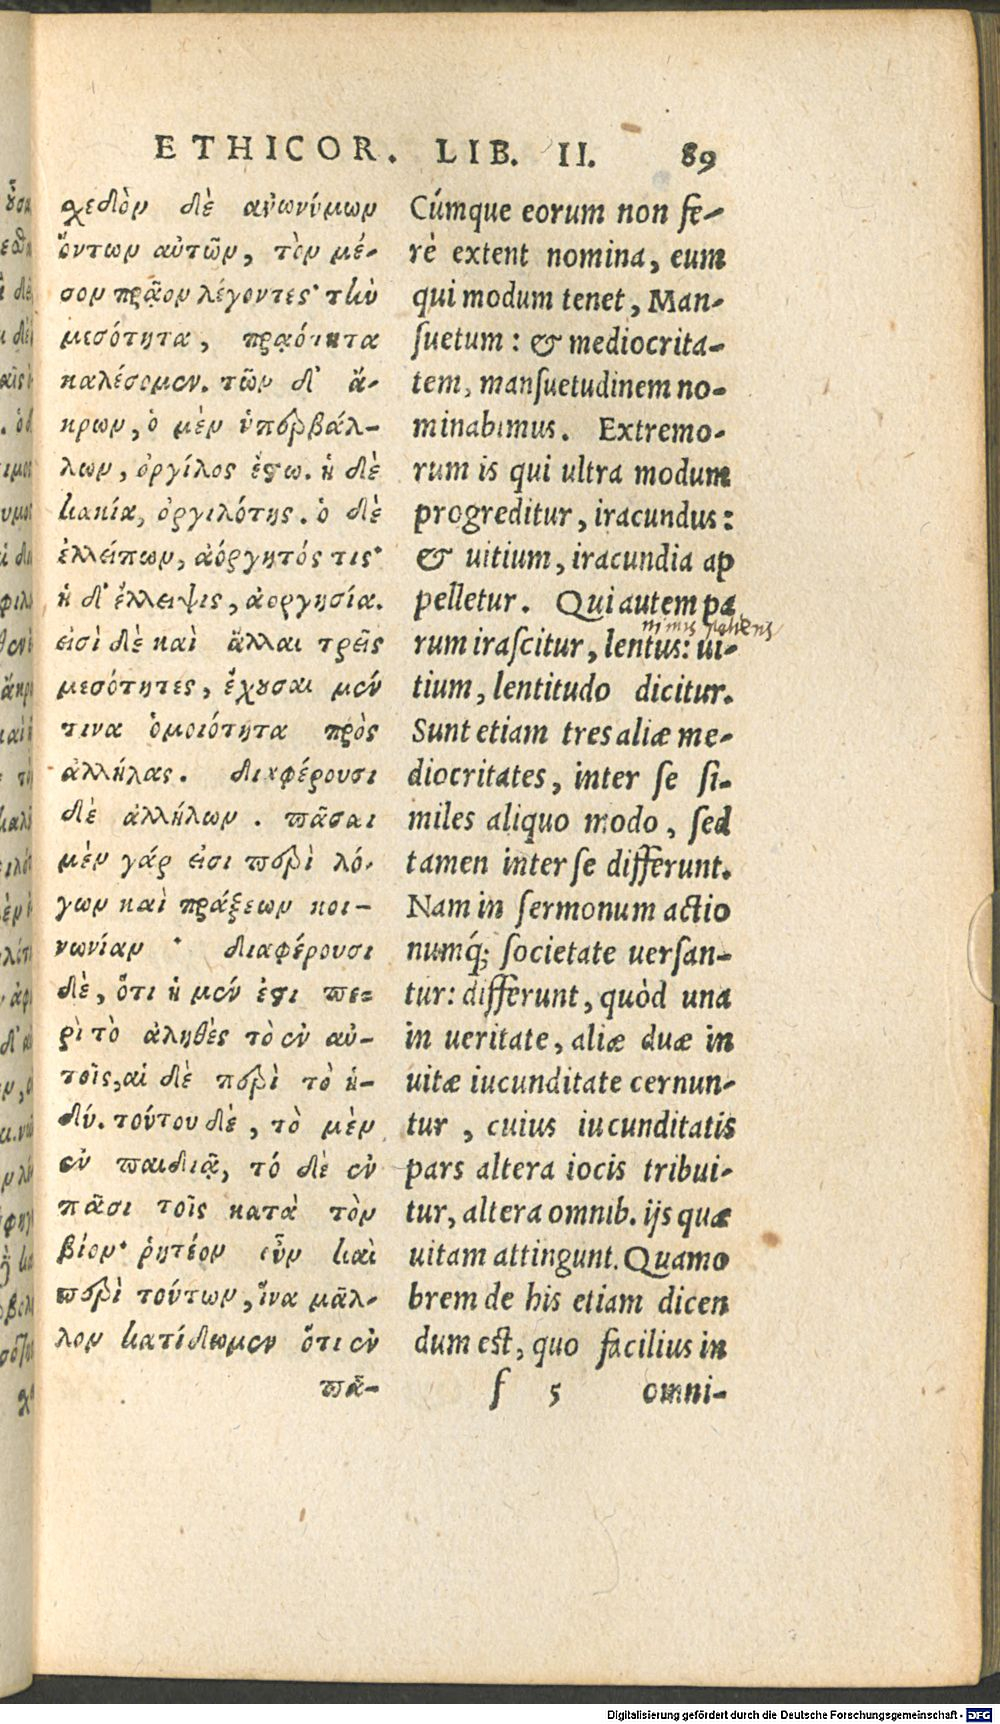 ETHICOR. LIB. II. 89
χεδὸν δὲ ἀνωνύμων
ὄντων αὐτῶν, τὸν μέ-
σον πρᾷον λέγοντες· τὴν
μεσότητα, πρᾳότητα
καλέσομεν. τῶν δ' ἄ-
κρων, ὁ μὲν ὑπερβάλ-
λων, ὀργίλος ἔστω. ἡ δὲ
κακία, ὀργιλότης. ὁ δὲ
ἐλλείπων, ἀόργητός τις·
ἡ δ' ἔλλειψις, ἀοργησία.
εἰσὶ δὲ καὶ ἄλλαι τρεῖς
μεσότητες, ἔχουσαι μέν
τινα ὁμοιότητα πρὸς
ἀλλήλας. διαφέρουσι
δὲ ἀλλήλων. πᾶσαι
μὲν γάρ εἰσι περὶ λό-
γων καὶ πράξεων κοι-
νωνίαν · διαφέρουσι
δὲ, ὅτι ἡ μέν ἐστι πε-
ρὶ τὸ ἀληθὲς τὸ ἐν αὐ-
τοῖς, αἱ δὲ περὶ τὸ ἡ-
δύ. τούτου δὲ, τὸ μὲν
ἐν παιδιᾷ, τό δὲ ἐν
πᾶσι τοῖς κατὰ τὸν
βίον· ῥητέον οὖν καὶ
περὶ τούτων, ἵνα μᾶλ-
λον κατίδωμεν ὅτι ἐν
πᾶ-
Cúmque eorum non fe-
rè extent nomina, eum
qui modum tenet, Man-
suetum: & mediocrita-
tem, mansuetudinem no-
minabimus. Extremo-
rum is qui ultra modum
progreditur, iracundus:
& uitium, iracundia ap
pelletur. Qui autem pa
nimis patiens
rum irascitur, lentus: ui-
tium, lentitudo dicitur.
Sunt etiam tres aliæ me-
diocritates, inter se si-
miles aliquo modo, sed
tamen inter se differunt.
Nam in sermonum actio
numq́; societate uersan-
tur: differunt, quòd una
in ueritate, aliæ duæ in
uitæ iucunditate cernun-
tur, cuius iucunditatis
pars altera iocis tribui-
tur, altera omnib. ijs quæ
uitam attingunt. Quamo
brem de his etiam dicen
dum est, quo facilius in
f 5 omni-
Digitalisierung gefördert durch die Deutsche Forschungsgemeinschaft - DFG